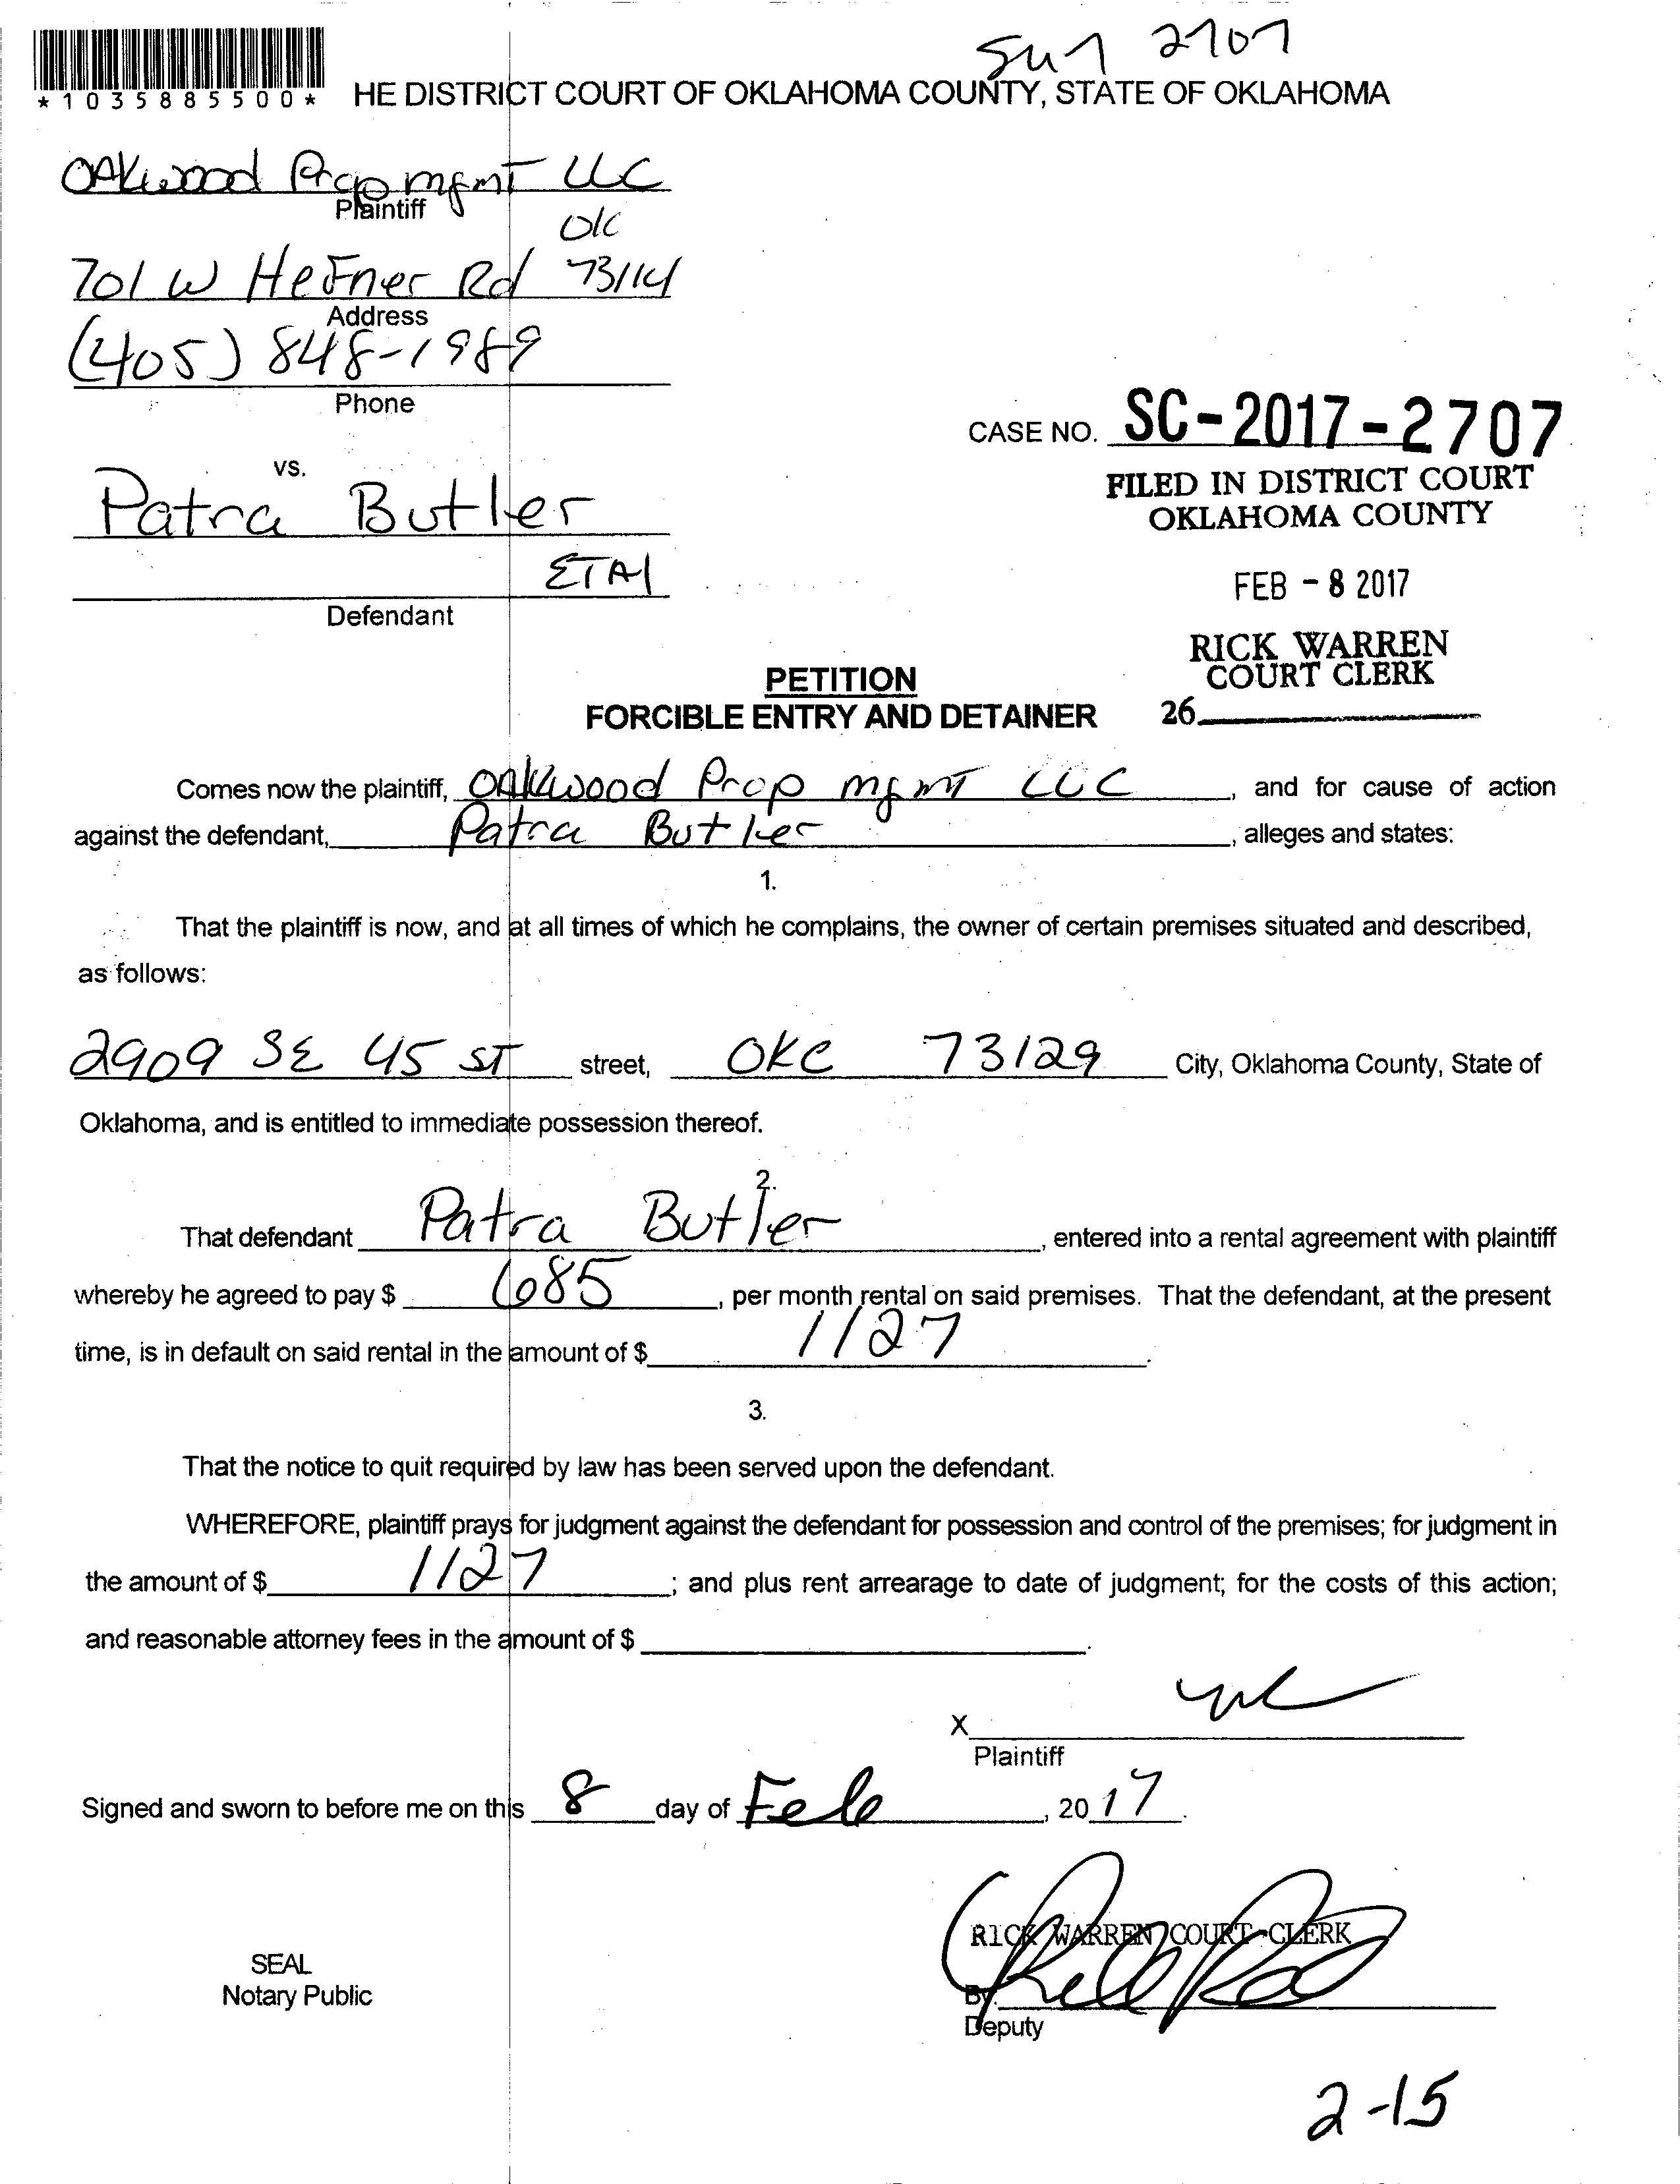 2707
*1035885500*
HE DISTRICT COURT OF OKLAHOMA COUNTY, STATE OF OKLAHOMA
OAkwood Prop mgmT LLC
Plaintiff
OK
701 W HeFner Rd 73114
Address
(405) 848-1989
Phone
CASE NO. SC-2017-2707
FILED IN DISTRICT COURT
OKLAHOMA COUNTY
vs.
Patra Butler
ETAl
Defendant
FEB - 8 2017
RICK WARREN
COURT CLERK
26
PETITION
FORCIBLE ENTRY AND DETAINER
Comes now the plaintiff, OAkwood Prop mgmT LLC, and for cause of action
against the defendant, Patra Butler, alleges and states:
1.
That the plaintiff is now, and at all times of which he complains, the owner of certain premises situated and described,
as follows:
2909 SE 45 ST street, OKC 73129 City, Oklahoma County, State of
Oklahoma, and is entitled to immediate possession thereof.
2.
That defendant Patra Butler, entered into a rental agreement with plaintiff
whereby he agreed to pay $ 685, per month rental on said premises. That the defendant, at the present
time, is in default on said rental in the amount of $ 1127.
3.
That the notice to quit required by law has been served upon the defendant.
WHEREFORE, plaintiff prays for judgment against the defendant for possession and control of the premises; for judgment in
the amount of $ 1127; and plus rent arrearage to date of judgment; for the costs of this action;
and reasonable attorney fees in the amount of $ .
X
Plaintiff
Signed and sworn to before me on this 8 day of Feb, 2017.
RICK WARREN COURT CLERK
SEAL
Notary Public
By:
Deputy
2-15